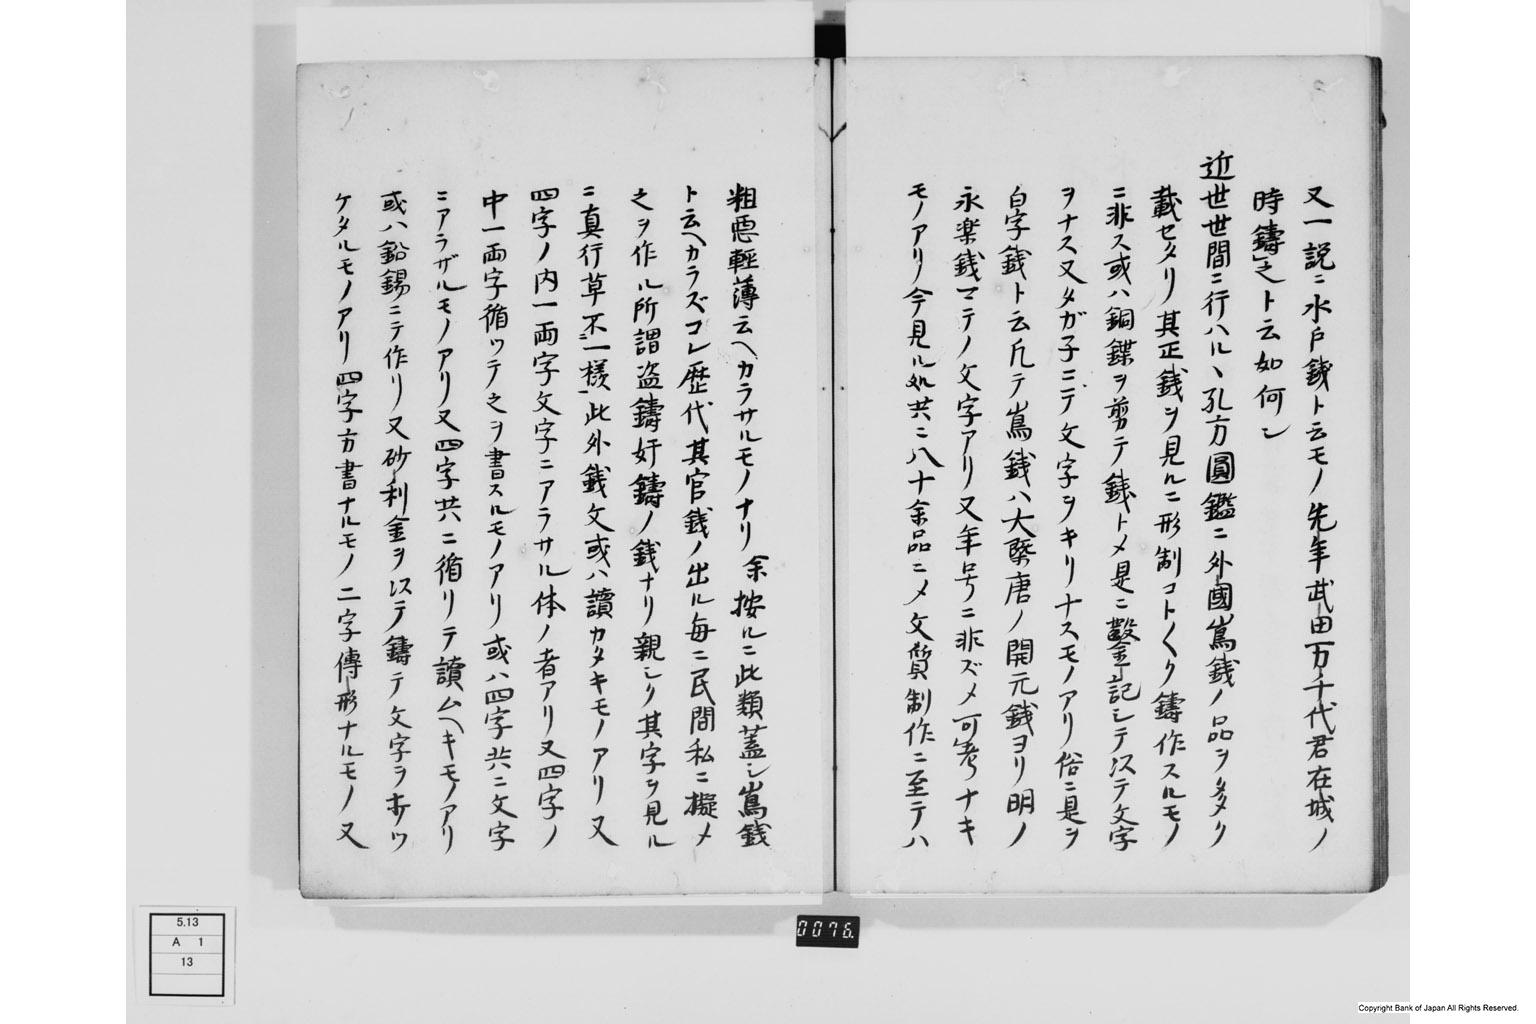 又一説ニ水戸銭ト云モノ先年武田万千代君在城ノ
時鑄之ト云如何ン
近世世間ニ行ハルヽ孔方圓鑑ニ外國嶌銭ノ品ヲ多ク
載セタリ其正銭ヲ見ルニ形制コト〱ク鑄作スルモノ
ニ非ス或ハ銅鍱ヲ剪テ銭トメ是ニ鑿記シテ以テ文字
ヲナス又タガ子ニテ文字ヲキリナスモノアリ俗ニ是ヲ
白字銭ト云凡テ嶌銭ハ大槩唐ノ開元銭ヨリ明ノ
永楽銭マテノ文字アリ又年号ニ非ズメ可考ナキ
モノアリ今見ル処共ニ八十余品ニメ文質制作ニ至テハ
粗悪輕薄云ヘカラサルモノナリ 余按ルニ此類蓋シ嶌銭
ト云ヘカラズコレ歴代其官銭ノ出ル毎ニ民間私ニ擬メ
之ヲ作ル所謂盗鑄奸鑄ノ銭ナリ親シク其字ヲ見ル
ニ真行草不一様此外銭文或ハ讀カタキモノアリ又
四字ノ内一両字文字ニアラサル体ノ者アリ又四字ノ
中一両字循ッテ之ヲ書スルモノアリ或ハ四字共ニ文字
ニアラザルモノアリ又四字共ニ循リテ讀ムヘキモノアリ
或ハ鉛錫ニテ作リ又砂利金ヲ以テ鑄テ文字ヲホッ
ケタルモノアリ四字方書ナルモノ二字傳形ナルモノ又
0076.
5.13
A 1
13
Copyright Bank of Japan All Rights Reserved.